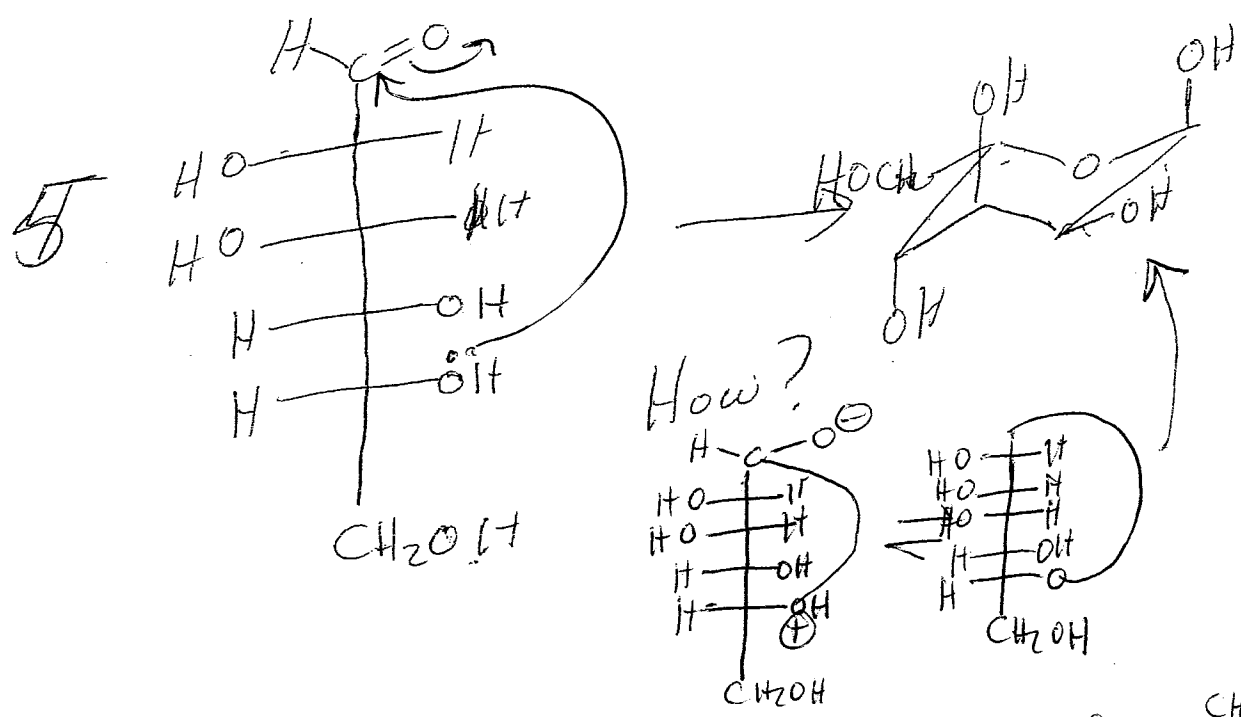 5
H C O
HO H
HO H
H OH
H OH
CH2OH
OH
OH
HOCH2 O
OH
OH
How?
H C O ⊖
HO H
HO H
H OH
H OH
⊕
CH2OH
HO H
HO H
HO H
H OH
H O
CH2OH
CH